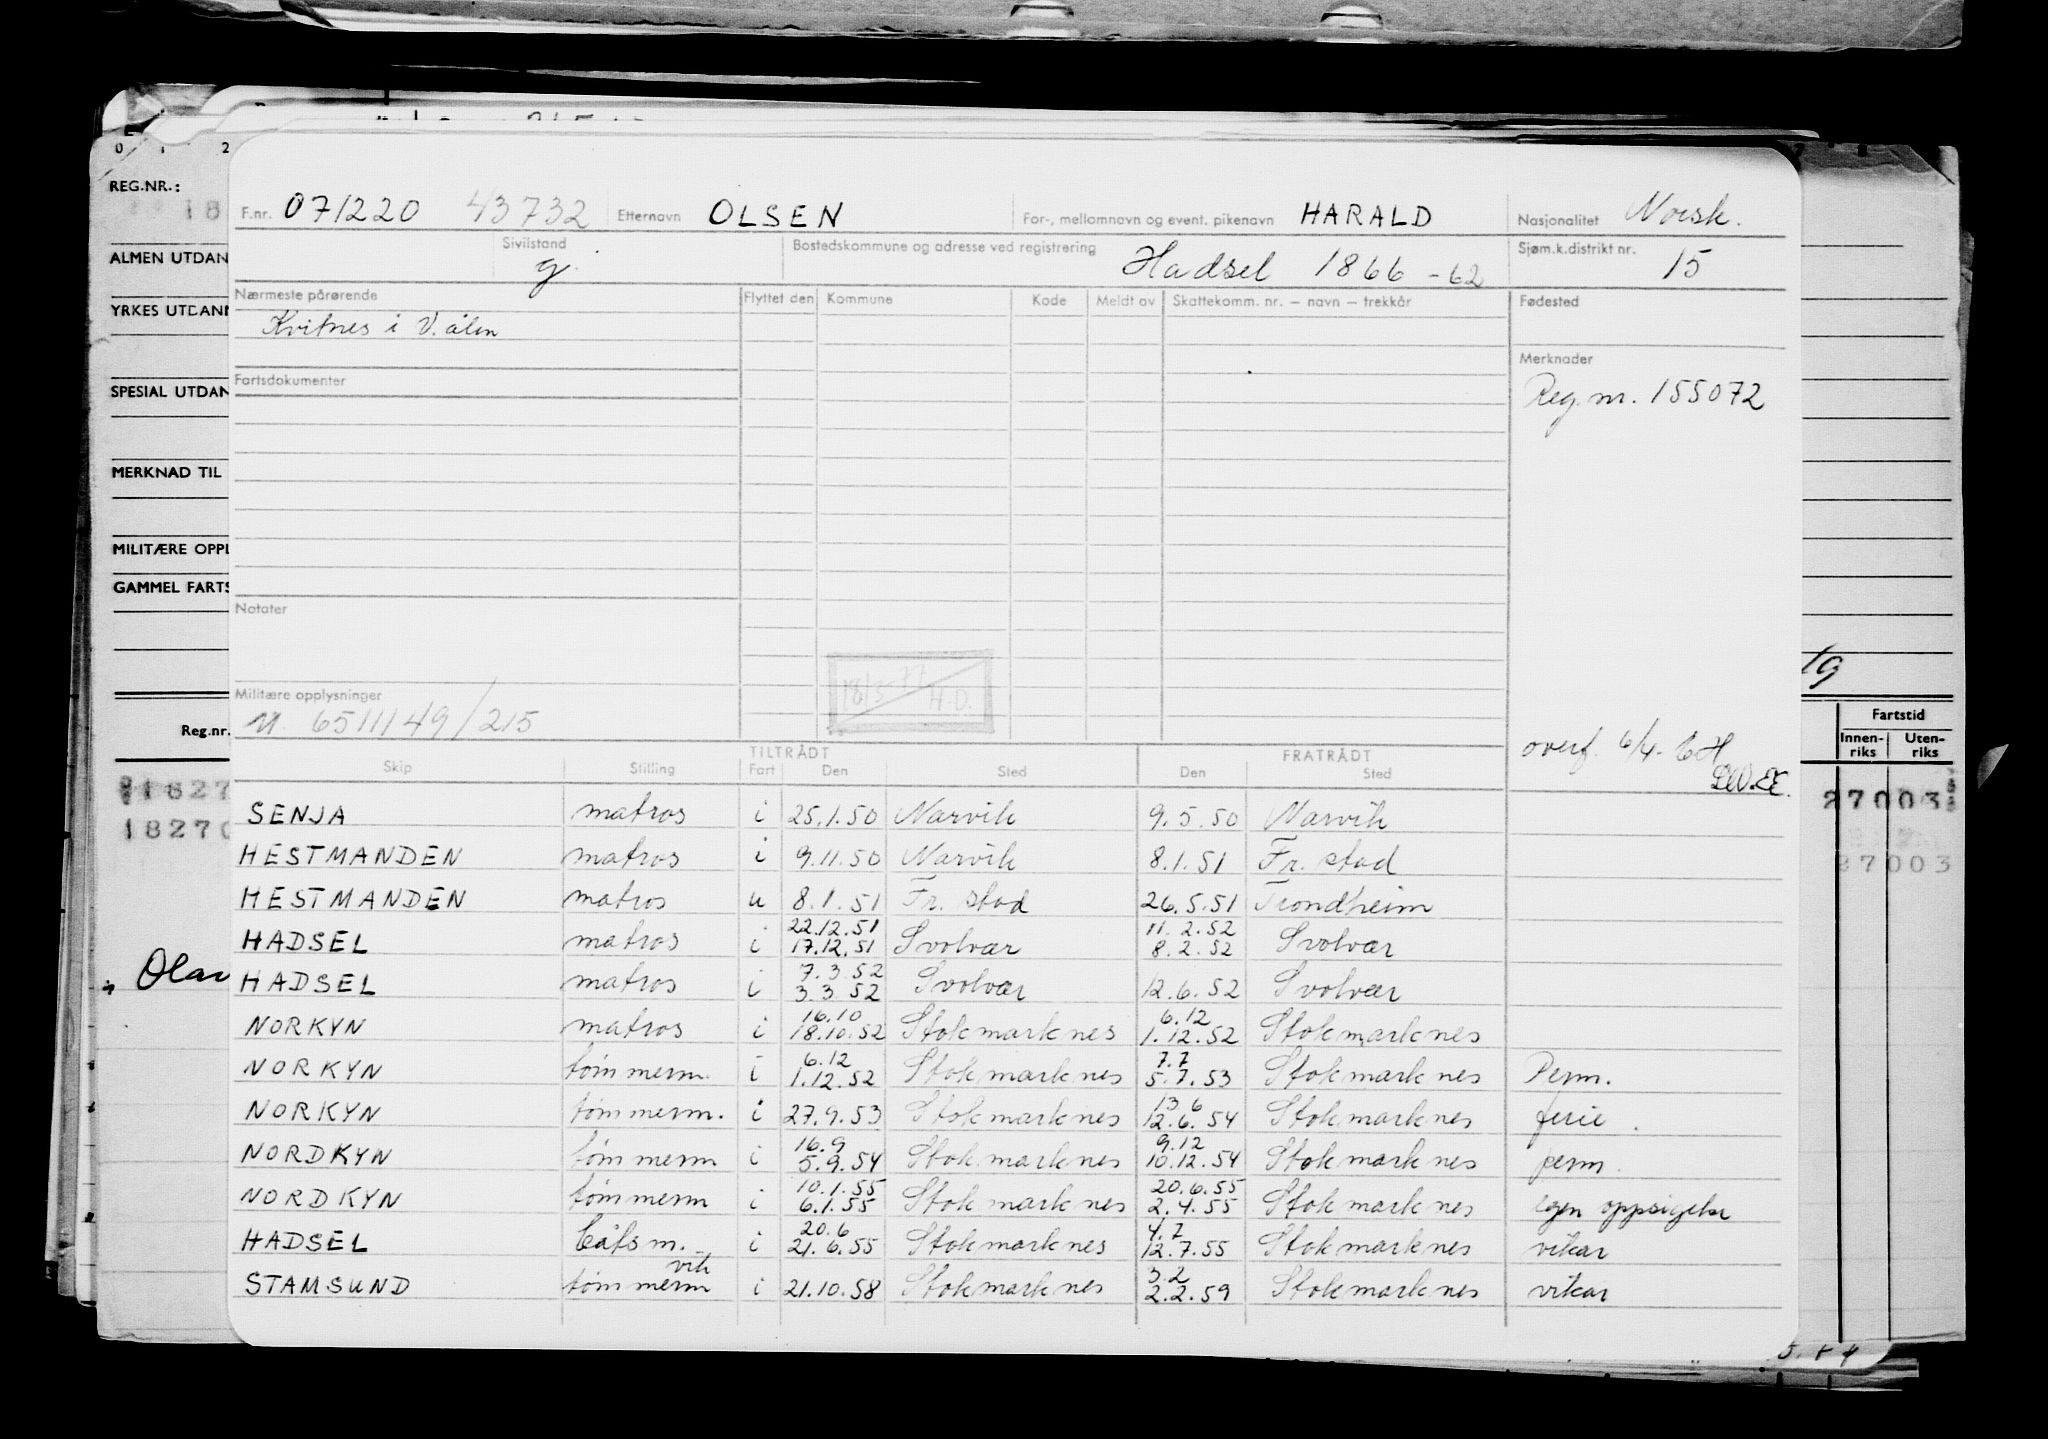 0 1 2
REG.NR.:
18
F.nr. 071220 43732 Etternavn OLSEN For-, mellomnavn og event. pikenavn HARALD Nasjonalitet Norsk.
ALMEN UTDAN
Sivilstand g. Bostedskommune og adresse ved registrering Hadsel 1866 - 62 Sjøm.k.distrikt nr. 15
YRKES UTDANN
Nærmeste pårørende Flyttet den Kommune Kode Meldt av Skattekomm. nr. – navn – trekkår Fødested
Kvitnes i V.ålen
Merknader
SPESIAL UTDAN
Fartsdokumenter
Reg.nr. 155072
MERKNAD TIL
MILITÆRE OPPL
GAMMEL FARTS
Notater
18/3-77 H.O.
Militære opplysninger
M. 6511149/215
Reg.nr.
overf. 6/4-64
Fartstid
Innen-riks Uten-riks
TILTRÅDT FRATRÅDT
Skip Stilling Fart Den Sted Den Sted
SENJA matros i 25.1.50 Narvik 9.5.50 Narvik
HESTMANDEN matros i 9.11.50 Narvik 8.1.51 Fr. stad
HESTMANDEN matros u 8.1.51 Fr. stad 26.5.51 Trondheim
22.12.51 11.2.52
HADSEL matros i 17.12.51 Svolvær 8.2.52 Svolvær
7.3.52
HADSEL matros i 3.3.52 Svolvær 12.6.52 Svolvær
16.10 6.12
NORKYN matros i 18.10.52 Stokmarknes 1.12.52 Stokmarknes
6.12 7.7
NORKYN tømmerm. i 1.12.52 Stokmarknes 5.7.53 Stokmarknes Perm.
13.6
NORKYN tømmerm. i 27.9.53 Stokmarknes 12.6.54 Stokmarknes ferie.
16.9 9.12
NORDKYN tømmerm i 5.9.54 Stokmarknes 10.12.54 Stokmarknes perm.
10.1.55 20.6.55
NORDKYN tømmerm i 6.1.55 Stokmarknes 2.4.55 Stokmarknes egen oppsigelse
20.6 4.7
HADSEL båtsm. i 21.6.55 Stokmarknes 12.7.55 Stokmarknes vikar
vik 3.2
STAMSUND tømmerm i 21.10.58 Stokmarknes 2.2.59 Stokmarknes vikar
27003
27003
18270
Olav